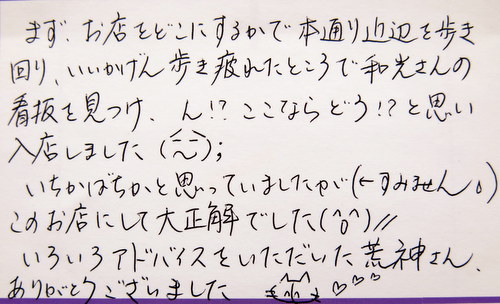 まず、お店をどこにするかで本通り近辺を歩き
回り、いいかげん歩き疲れたところで和光さんの
看板を見つけ、ん!?ここならどう!?と思い
入店しました(^~^);
いちかばちかと思っていましたが(←すみません。)
このお店にして大正解でした(^o^)//
いろいろアドバイスをいただいた荒神さん、
ありがとうございました ♡♡♡